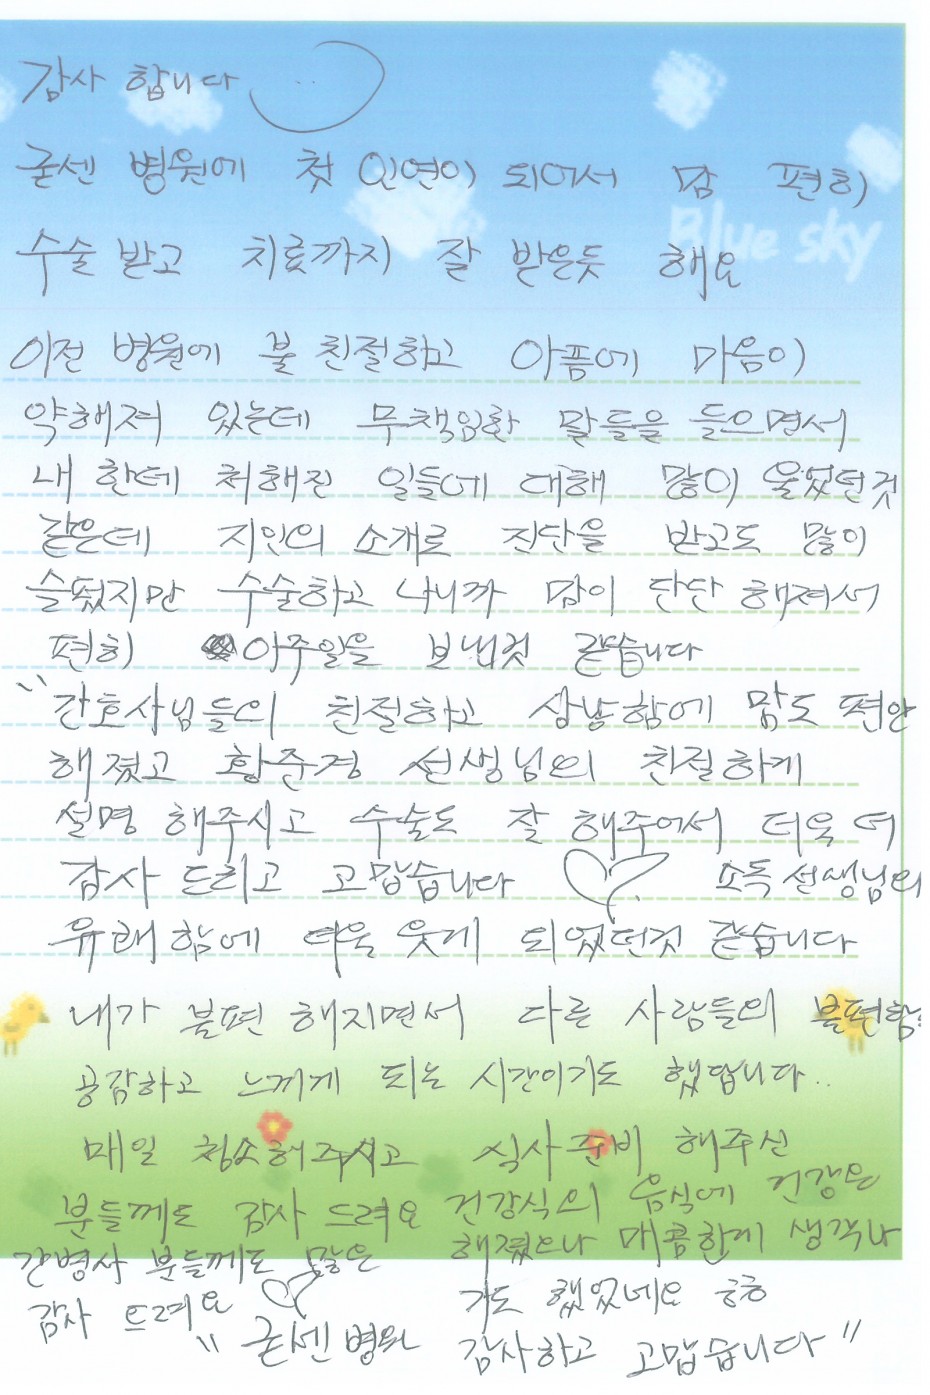 감사 합니다
굳센 병원에 첫 인연이 되어서 맘 편히
Blue sky
수술 받고 치료까지 잘 받은듯 해요
이전 병원에 불 친절하고 아픔에 마음이
약해져 있는데 무책임한 말들을 들으면서
내 한데 처해진 일들에 대해 많이 울었던것
같은데 지인의 소개로 진단을 받고도 많이
슬펐지만 수술하고 나니까 맘이 단단 해져서
편히 아주일을 보낸것 같습니다
"간호사님들의 친절하고 상냥함에 맘도 편안
해졌고 황준경 선생님의 친절하게
설명 해주시고 수술도 잘 해주어서 더욱 더
감사 드리고 고맙습니다 소독 선생님의
유쾌함에 더욱 웃게 되었던것 같습니다
내가 불편 해지면서 다른 사람들의 불편함
공감하고 느끼게 되는 시간이기도 했답니다..
매일 청소해주시고 식사준비 해주신
분들께도 감사 드려요 건강식의 음식에 건강은
해졌으나 매콤한게 생각나
기도 했었네요 ㅎㅎ
간병사 분들께도 많은
감사 드려요
"굳센병원 감사하고 고맙습니다"